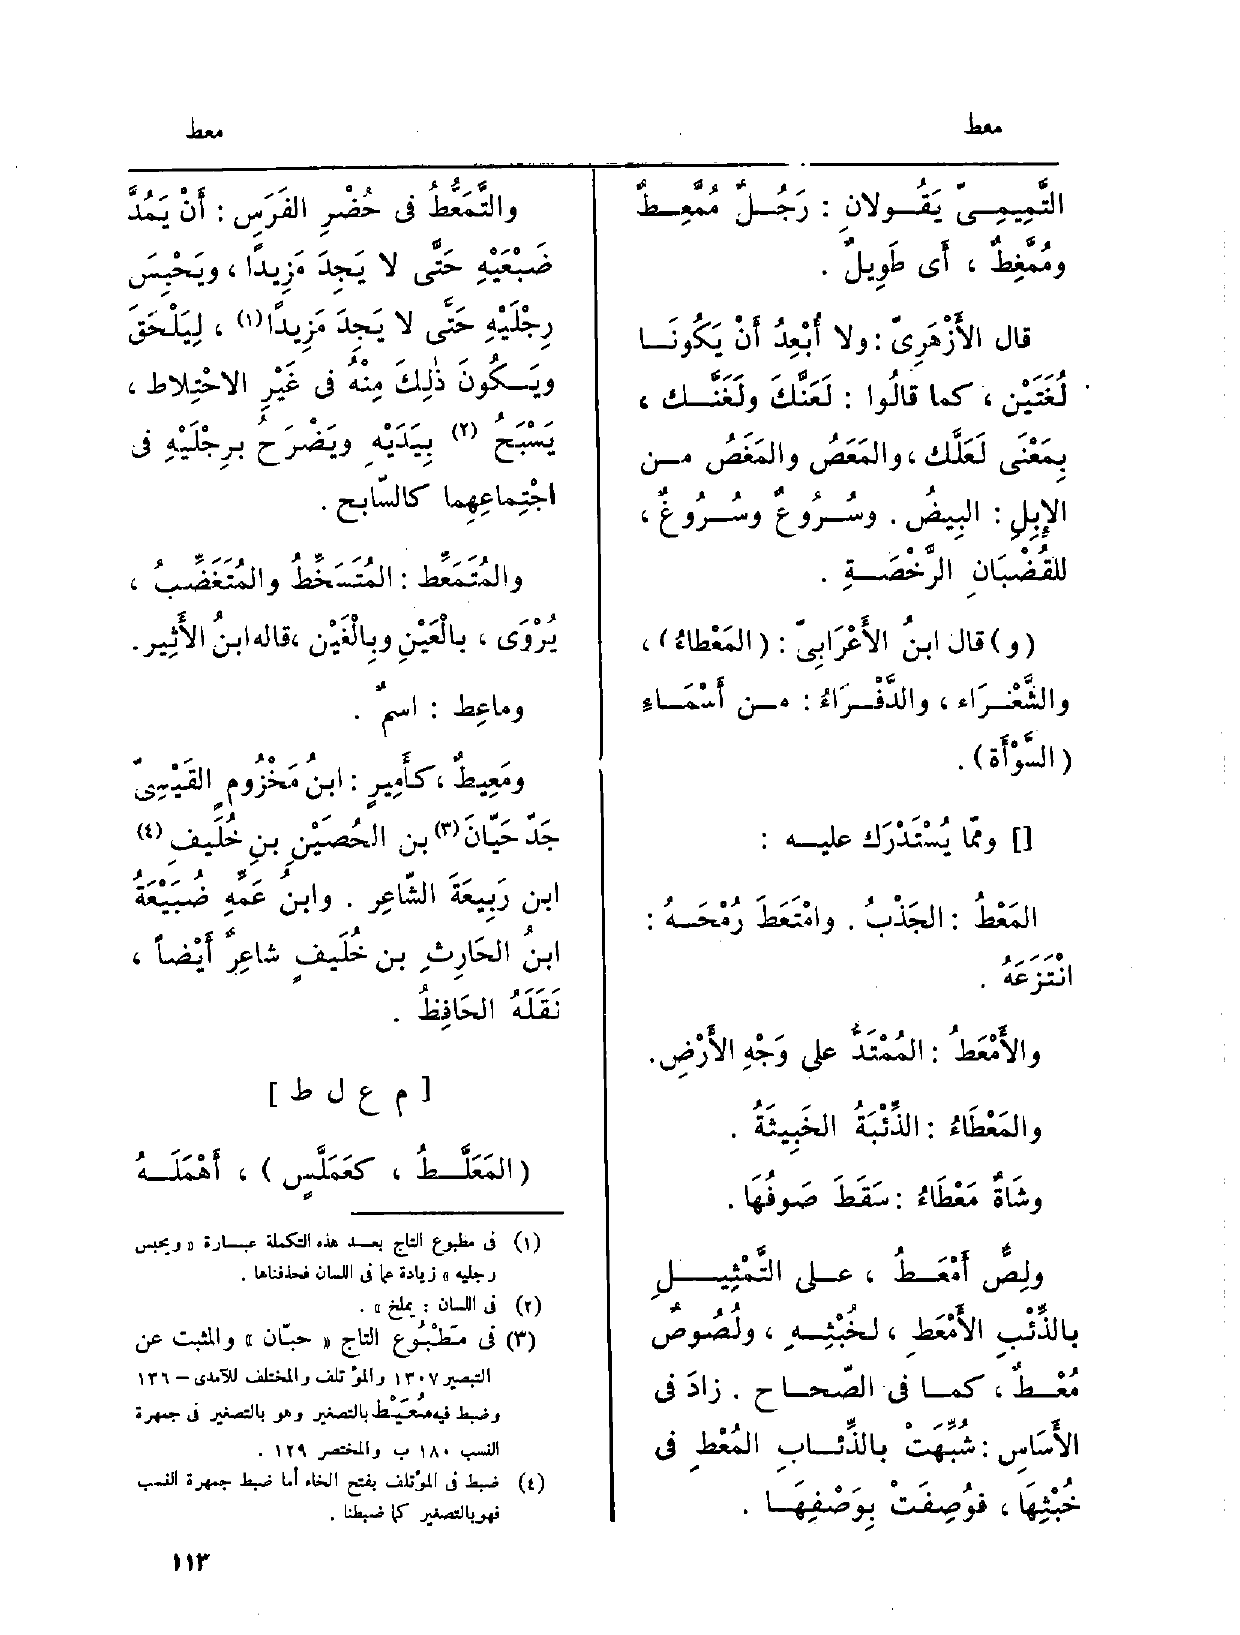 معط
معط
التَّمِيمِىّ يَقُولانِ : رَجُلٌ مُمَّعِطٌ
ومُمَّغِطٌ ، أى طَوِيلٌ .
قال الأَزْهَرِىّ : ولا أُبْعِدُ أَنْ يَكُونَا
لُغَتَيْنِ ، كما قالُوا : لَعَنَّكَ ولَغَنَّكَ ،
بِمَعْنَى لَعَلَّكَ ، والمَعَصُ والمَغَصُ من
الإِبِلِ : البِيضُ . وسُرُوعٌ وسُرُوغٌ ،
للقُضْبَانِ الرَّخْصَةِ .
(و) قال ابنُ الأَعْرَابِىّ : (المَعْطاءُ) ،
والشَّعْرَاء ، والدَّفْرَاءُ : من أَسْمَاءِ
(السَّوْأَة) .
[] وممّا يُسْتَدْرَك عليه :
المَعْطُ : الجَذْبُ . وامْتَعَطَ رُمْحَهُ :
انْتَزَعَهُ .
والأَمْعَطُ : المُمْتَدُّ على وَجْهِ الأَرْضِ .
والمَعْطَاءُ : الذِّئْبَةُ الخَبِيثَةُ .
وشَاةٌ مَعْطَاءُ : سَقَطَ صَوفُهَا .
ولِصٌّ أَمْعَطُ ، على التَّمْثِيلِ
بالذِّئْبِ الأَمْعَطِ ، لخُبْثِهِ ، ولُصُوصٌ
مُعْطٌ ، كما فى الصّحاح . زادَ فى
الأَسَاسِ : شُبِّهَتْ بالذِّئابِ المُعْطِ فى
خُبْثِهَا ، فوُصِفَتْ بِوَصْفِهَا .
والتَّمَعُّطُ فى حُضْرِ الفَرَسِ : أَنْ يَمُدَّ
ضَبْعَيْهِ حَتَّى لا يَجِدَ مَزِيدًا ، ويَحْبِسَ
رِجْلَيْهِ حَتَّى لا يَجِدَ مَزِيدًا (١) ، لِيَلْحَقَ
ويَكُونَ ذٰلِكَ مِنْهُ فى غَيْرِ الاخْتِلاطِ ،
يَسْبَحُ (٢) بِيَدَيْهِ ويَضْرَحُ بِرِجْلَيْهِ فى
اجْتِماعِهِما كالسّابِح .
والمُتَمَعِّط : المُتَسَخِّطُ والمُتَغَضِّبُ ،
يُرْوَى ، بالْعَيْنِ وبِالْغَيْنِ ، قاله ابنُ الأَثِير .
وماعِط : اسمٌ .
ومَعِيطٌ ، كأَمِيرٍ : ابنُ مَخْزُومٍ القَيْسِىّ
جَدّ حَيّانَ (٣) بن الحُصَيْنِ بنِ خُلَيفِ (٤)
ابن رَبِيعَةَ الشّاعِرِ . وابنُ عَمِّهِ ضُبَيْعَةُ
ابنُ الحَارِثِ بن خُلَيفٍ شاعِرٌ أَيْضاً ،
نَقَلَهُ الحَافِظُ .
[ م ع ل ط ]
(المَعَلَّطُ ، كعَمَلَّسٍ) ، أَهْمَلَهُ
(١) فى مطبوع التاج بعد هذه التكملة عبارة « ويحبس
رجليه » زيادة عما فى اللسان فحذفناها .
(٢) فى اللسان : يملخ » .
(٣) فى مَطْبُوع التاج « حبّان » والمثبت عن
التبصير ١٣٠٧ والمؤتلف والمختلف للآمدى - ١٣٦
وضبط فيه مُعَيْط بالتصغير وهو بالتصغير فى جمهرة
النسب ١٨٠ ب والمختصر ١٢٩ .
(٤) ضبط فى المؤتلف بفتح الخاء أما ضبط جمهرة النسب
فهو بالتصغير كما ضبطنا .
١١٣